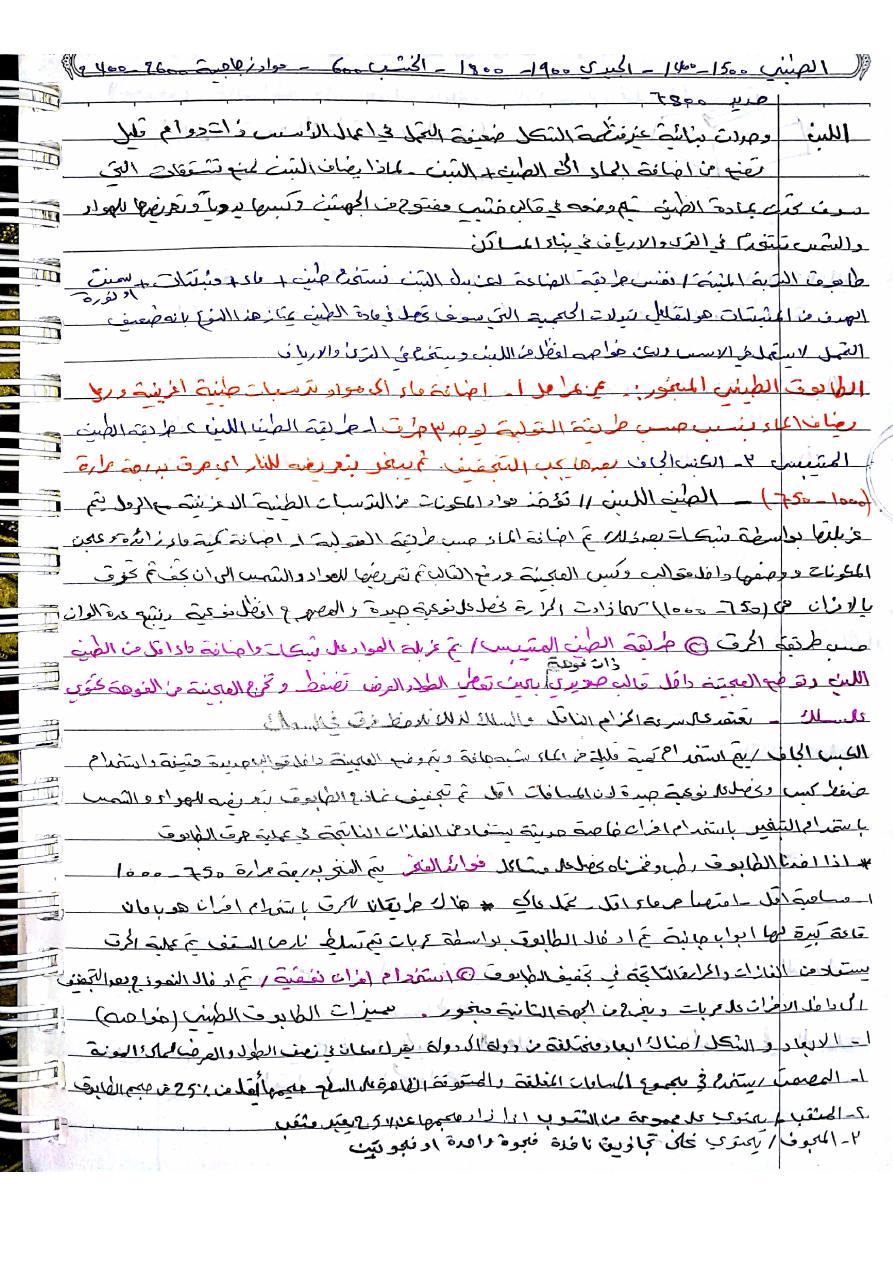 الطيني 1500-1400 - الجيري 1900-1800 - الخشب 600 - مواد زجاجية 2600-2400
حديد 7800
اللبن وحدات بنائية غير منتظمة الشكل ضعيفة التحمل في اعمال الأسس ذات دوام قليل
تصنع من اضافة الماء الى الطين + التبن - لماذا يضاف التبن لمنع تشققات التي
سوف تحدث بمادة الطين يتم وضعه في قالب خشبي مفتوح من الجهتين وكبسها يدوياً وتعريضها للهواء
والشمس تستخدم في القرى والارياف في بناء المساكن
طابوق التربة المثبتة / نفس طريقة الصناعة لكن بدل التبن نستخدم طين + ماء + مثبتات + سمنت
او نورة
الهدف من المثبتات هو لتقليل تبدلات الحجمية التي سوف تحصل في مادة الطين يمتاز هذا النوع بانه ضعيف
التحمل لايستعمل في الاسس ولكن خواصه افضل من اللبن ويستخدم في القرى والارياف
الطابوق الطيني المفخور: يمر بمراحل 1- اضافة ماء الى مواد ترسبات طينية غرينية ورملية
يضاف الماء بنسب حسب طريقة القولبة يوجد 3 طرق 1- طريقة الطين اللين 2 طريقة الطين
المتيبس 3- الكبس الجاف بعدها يجب التجفيف ثم يفخر بتعريضه للنار اي حرق بدرجة حرارة
(1000-750) - الطين اللين // تؤخذ مواد المكونات من الترسبات الطينية الغرينية مع الرمل يتم
غربلتها بواسطة شبكات بعد ذلك تم اضافة الماء حسب طريقة القولبة 1- اضافة كمية ماء زائدة وعجن
المكونات ووضعها داخل قوالب وكبس العجينة ورفع القالب ثم تعريضها للهواء والشمس الى ان يجف ثم تحرق
بالافران من (750-1000) كلما زادت الحرارة نحصل على نوعية جيدة و افضل نوعية ينتج عدة الوان
حسب طريقة الحرق 2 طريقة الطين المتيبس / تم غربلة المواد على شبكات واضافة ماء اقل من الطين
ذات فوهة
اللين وتوضع العجينة داخل قالب حديدي بحيث تعطي الطول والعرض تضغط و تخرج العجينة من الفوهة تحتوي
على سلك - تعتمد على سرعة الحزام الناقل والسلك لذلك نلاحظ فرق في السمك
الكبس الجاف / يتم استخدام كمية قليلة من الماء شبه جافة ويتم وضع العجينة داخل قوالب حديدة متينة واستخدام
ضغط كبس ونحصل على نوعية جيدة لان المسامات اقل ثم تجفيف نماذج الطابوق بتعريضه للهواء والشمس
باستخدام التبخير باستخدام افران خاصة حديثة يستفاد من الغازات الناتجة في عملية حرق الطابوق
* اذا اخذنا الطابوق رطب وفخرناه نحصل على مشاكل فوائد الفخر يتم الفخر بدرجة حرارة 750-1000
1- مسامية اقل - امتصاص ماء اقل - تحمل عالي * هناك طريقتان للحرق باستخدام افران هوفمان
قاعة كبيرة لها ابواب جانبية تم ادخال الطابوق بواسطة عربات يتم تسليط نار من السقف يتم عملية الحرق
يستفاد من الغازات والحرارة الناتجة في تجفيف الطابوق 2 استخدام افران نفقية / تم ادخال النموذج بعد التجفيف
الى داخل الافران على عربات ويخرج من الجهة الثانية مفخور. مميزات الطابوق الطيني (خواصه)
1- الابعاد و الشكل / هناك ابعاد مختلفة من دولة الى دولة يشترك ان في نصف الطول والعرض لسمك المونة
1- المصمت / يستخدم في مجموع المسامات المغلقة والمفتوحة الظاهرة على السطح حجمها أقل من 25% من حجم الطابوق
2- المثقب / يحتوي على مجموعة من الثقوب اذا زاد حجمها عن 25% يعتبر مثقب
3- المجوف / يحتوي على تجاويف نافذة فجوة واحدة او فجوتين